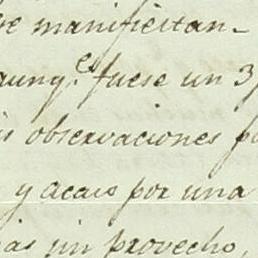 se manifiestan-
aunq.e fuese un 3
is observaciones p
y acaso por una
as sin provecho,